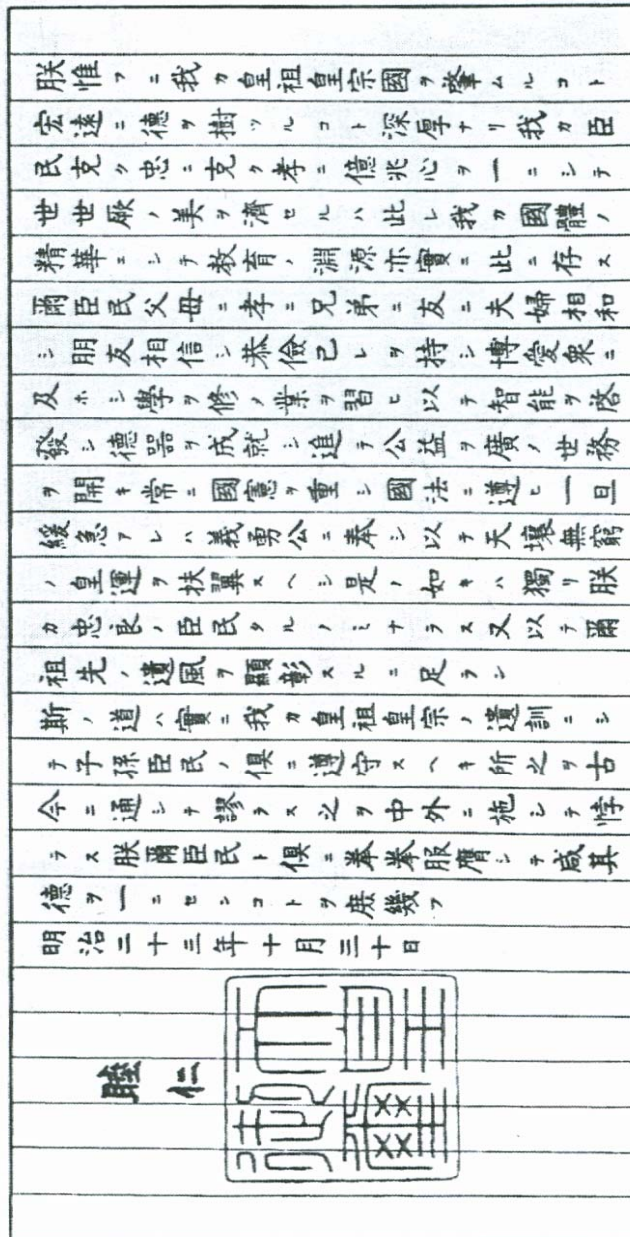 朕惟フニ我カ皇祖皇宗國ヲ肇ムルコト
宏遠ニ德ヲ樹ツルコト深厚ナリ我カ臣
民克ク忠ニ克ク孝ニ億兆心ヲ一ニシテ
世世厥ノ美ヲ濟セルハ此レ我カ國體ノ
精華ニシテ教育ノ淵源亦實ニ此ニ存ス
爾臣民父母ニ孝ニ兄弟ニ友ニ夫婦相和
シ朋友相信シ恭儉己レヲ持シ博愛衆ニ
及ホシ學ヲ修メ業ヲ習ヒ以テ智能ヲ啓
發シ德器ヲ成就シ進テ公益ヲ廣メ世務
ヲ開キ常ニ國憲ヲ重シ國法ニ遵ヒ一旦
緩急アレハ義勇公ニ奉シ以テ天壤無窮
ノ皇運ヲ扶翼スヘシ是ノ如キハ獨リ朕
カ忠良ノ臣民タルノミナラス又以テ爾
祖先ノ遺風ヲ顯彰スルニ足ラン
斯ノ道ハ實ニ我カ皇祖皇宗ノ遺訓ニシ
テ子孫臣民ノ俱ニ遵守スヘキ所之ヲ古
今ニ通シテ謬ラス之ヲ中外ニ施シテ悖
ラス朕爾臣民ト俱ニ拳拳服膺シテ咸其
德ヲ一ニセンコトヲ庶幾フ
明治二十三年十月三十日
睦仁
天皇御璽